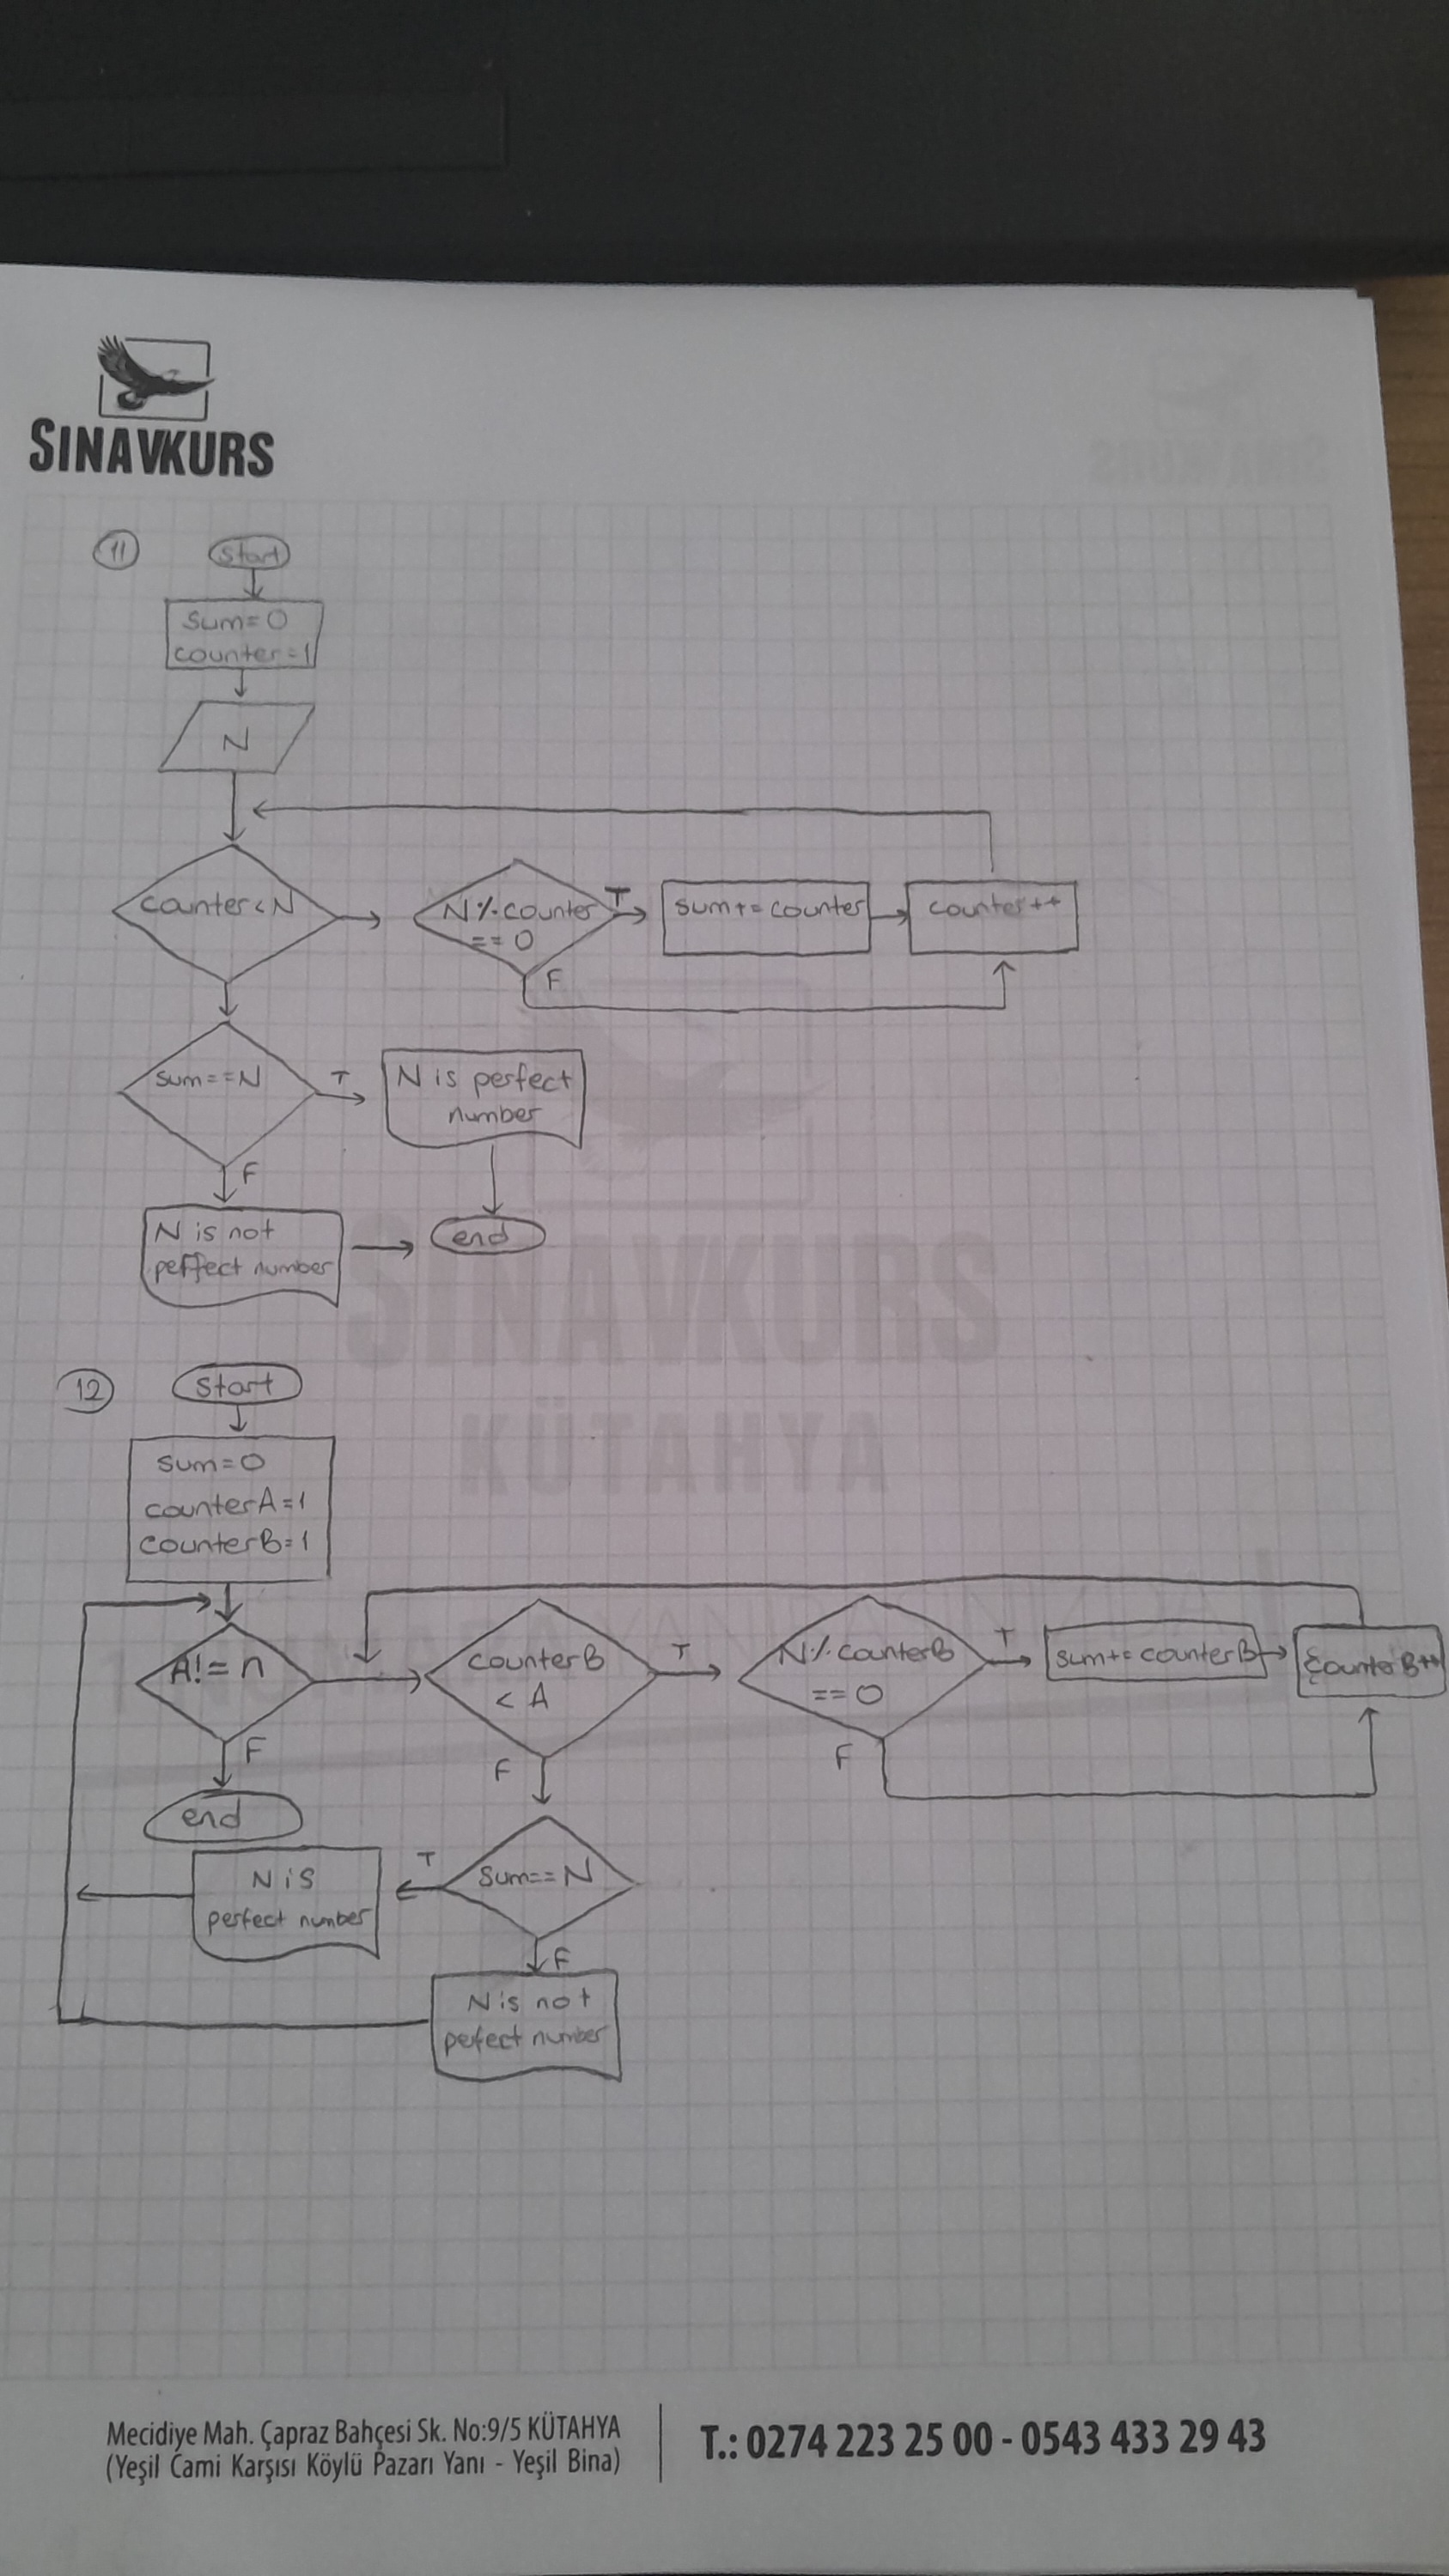 SINAVKURS
11
Start
sum=0
counter=1
N
counter<N
N%counter
==0
T
sum+=counter
counter++
F
sum==N
T
N is perfect
number
F
N is not
perffect number
end
SINAVKURS
KÜTAHYA
12
Start
sum=0
counterA=1
counterB=1
A!=n
counterB
<A
T
N%counterB
==0
T
sum+=counterB
counterB++
F
end
F
F
sum==N
T
N is
perfect number
F
N is not
perfect number
Mecidiye Mah. Çapraz Bahçesi Sk. No:9/5 KÜTAHYA
(Yeşil Cami Karşısı Köylü Pazarı Yanı - Yeşil Bina)
T.: 0274 223 25 00 - 0543 433 29 43